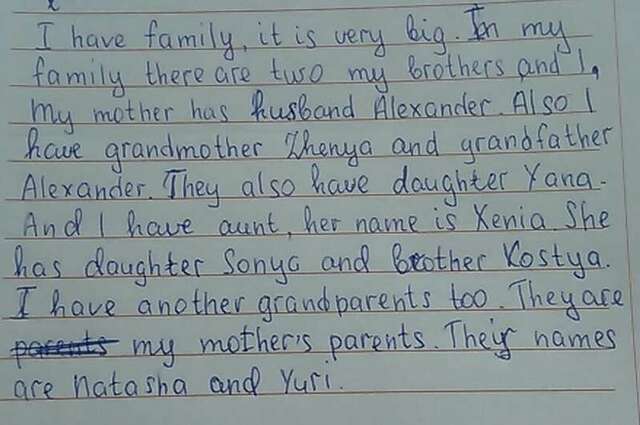 I have family, it is very big. In my
family there are two my brothers and I,
my mother has husband Alexander. Also I
have grandmother Zhenya and grandfather
Alexander. They also have daughter Yana.
And I have aunt, her name is Xenia. She
has daughter Sonya and brother Kostya.
I have another grandparents too. They are
parents my mother's parents. Their names
are Natasha and Yuri.